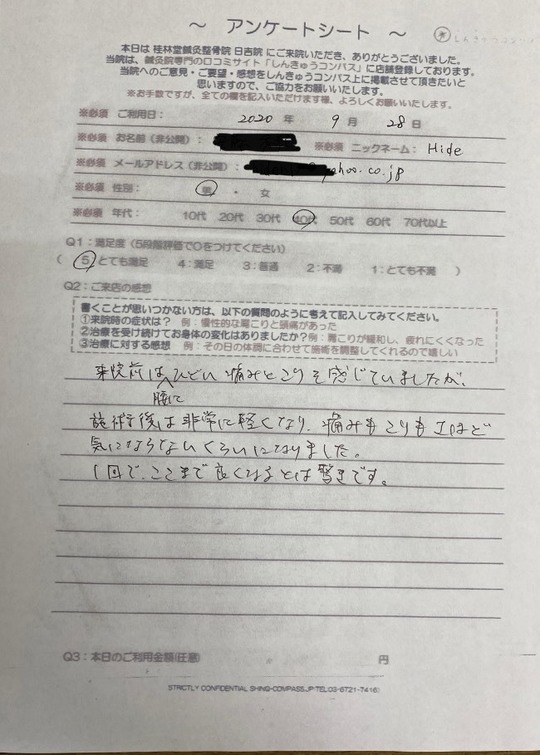 ～ アンケートシート ～
本日は 桂林堂鍼灸整骨院 日吉院 にご来院いただき、ありがとうございました。
当院は、鍼灸院専門の口コミサイト「しんきゅうコンパス」に店舗登録しております。
当院へのご意見・ご要望・感想をしんきゅうコンパス上に掲載させて頂きたいと
思いますので、ご協力をお願いいたします。
※お手数ですが、全ての欄を記入いただけます様、よろしくお願いいたします。
※必須 ご利用日： 2020 年 9 月 28 日
※必須 お名前（非公開）： ※必須 ニックネーム： Hide
※必須 メールアドレス（非公開）： yahoo.co.jp
※必須 性別： 男 ・ 女
※必須 年代： 10代 20代 30代 40代 50代 60代 70代以上
Q1：満足度（5段階評価で○をつけてください）
（ 5：とても満足 4：満足 3：普通 2：不満 1：とても不満 ）
Q2：ご来店の感想
書くことが思いつかない方は、以下の質問のように考えて記入してみてください。
①来院時の症状は？ 例：慢性的な肩こりと頭痛があった
②治療を受け続けてお身体の変化はありましたか？例：肩こりが緩和し、疲れにくくなった
③治療に対する感想 例：その日の体調に合わせて施術を調整してくれるので嬉しい
来院前は腰にひどい痛みとこりを感じていましたが、
施術後は非常に軽くなり、痛みもこりも ほど
気にならないくらいになりました。
1回で、ここまで良くなるとは驚きです。
Q3：本日のご利用金額(任意) 円
STRICTLY CONFIDENTIAL SHINQ-COMPASS.JP TEL03-6721-7416